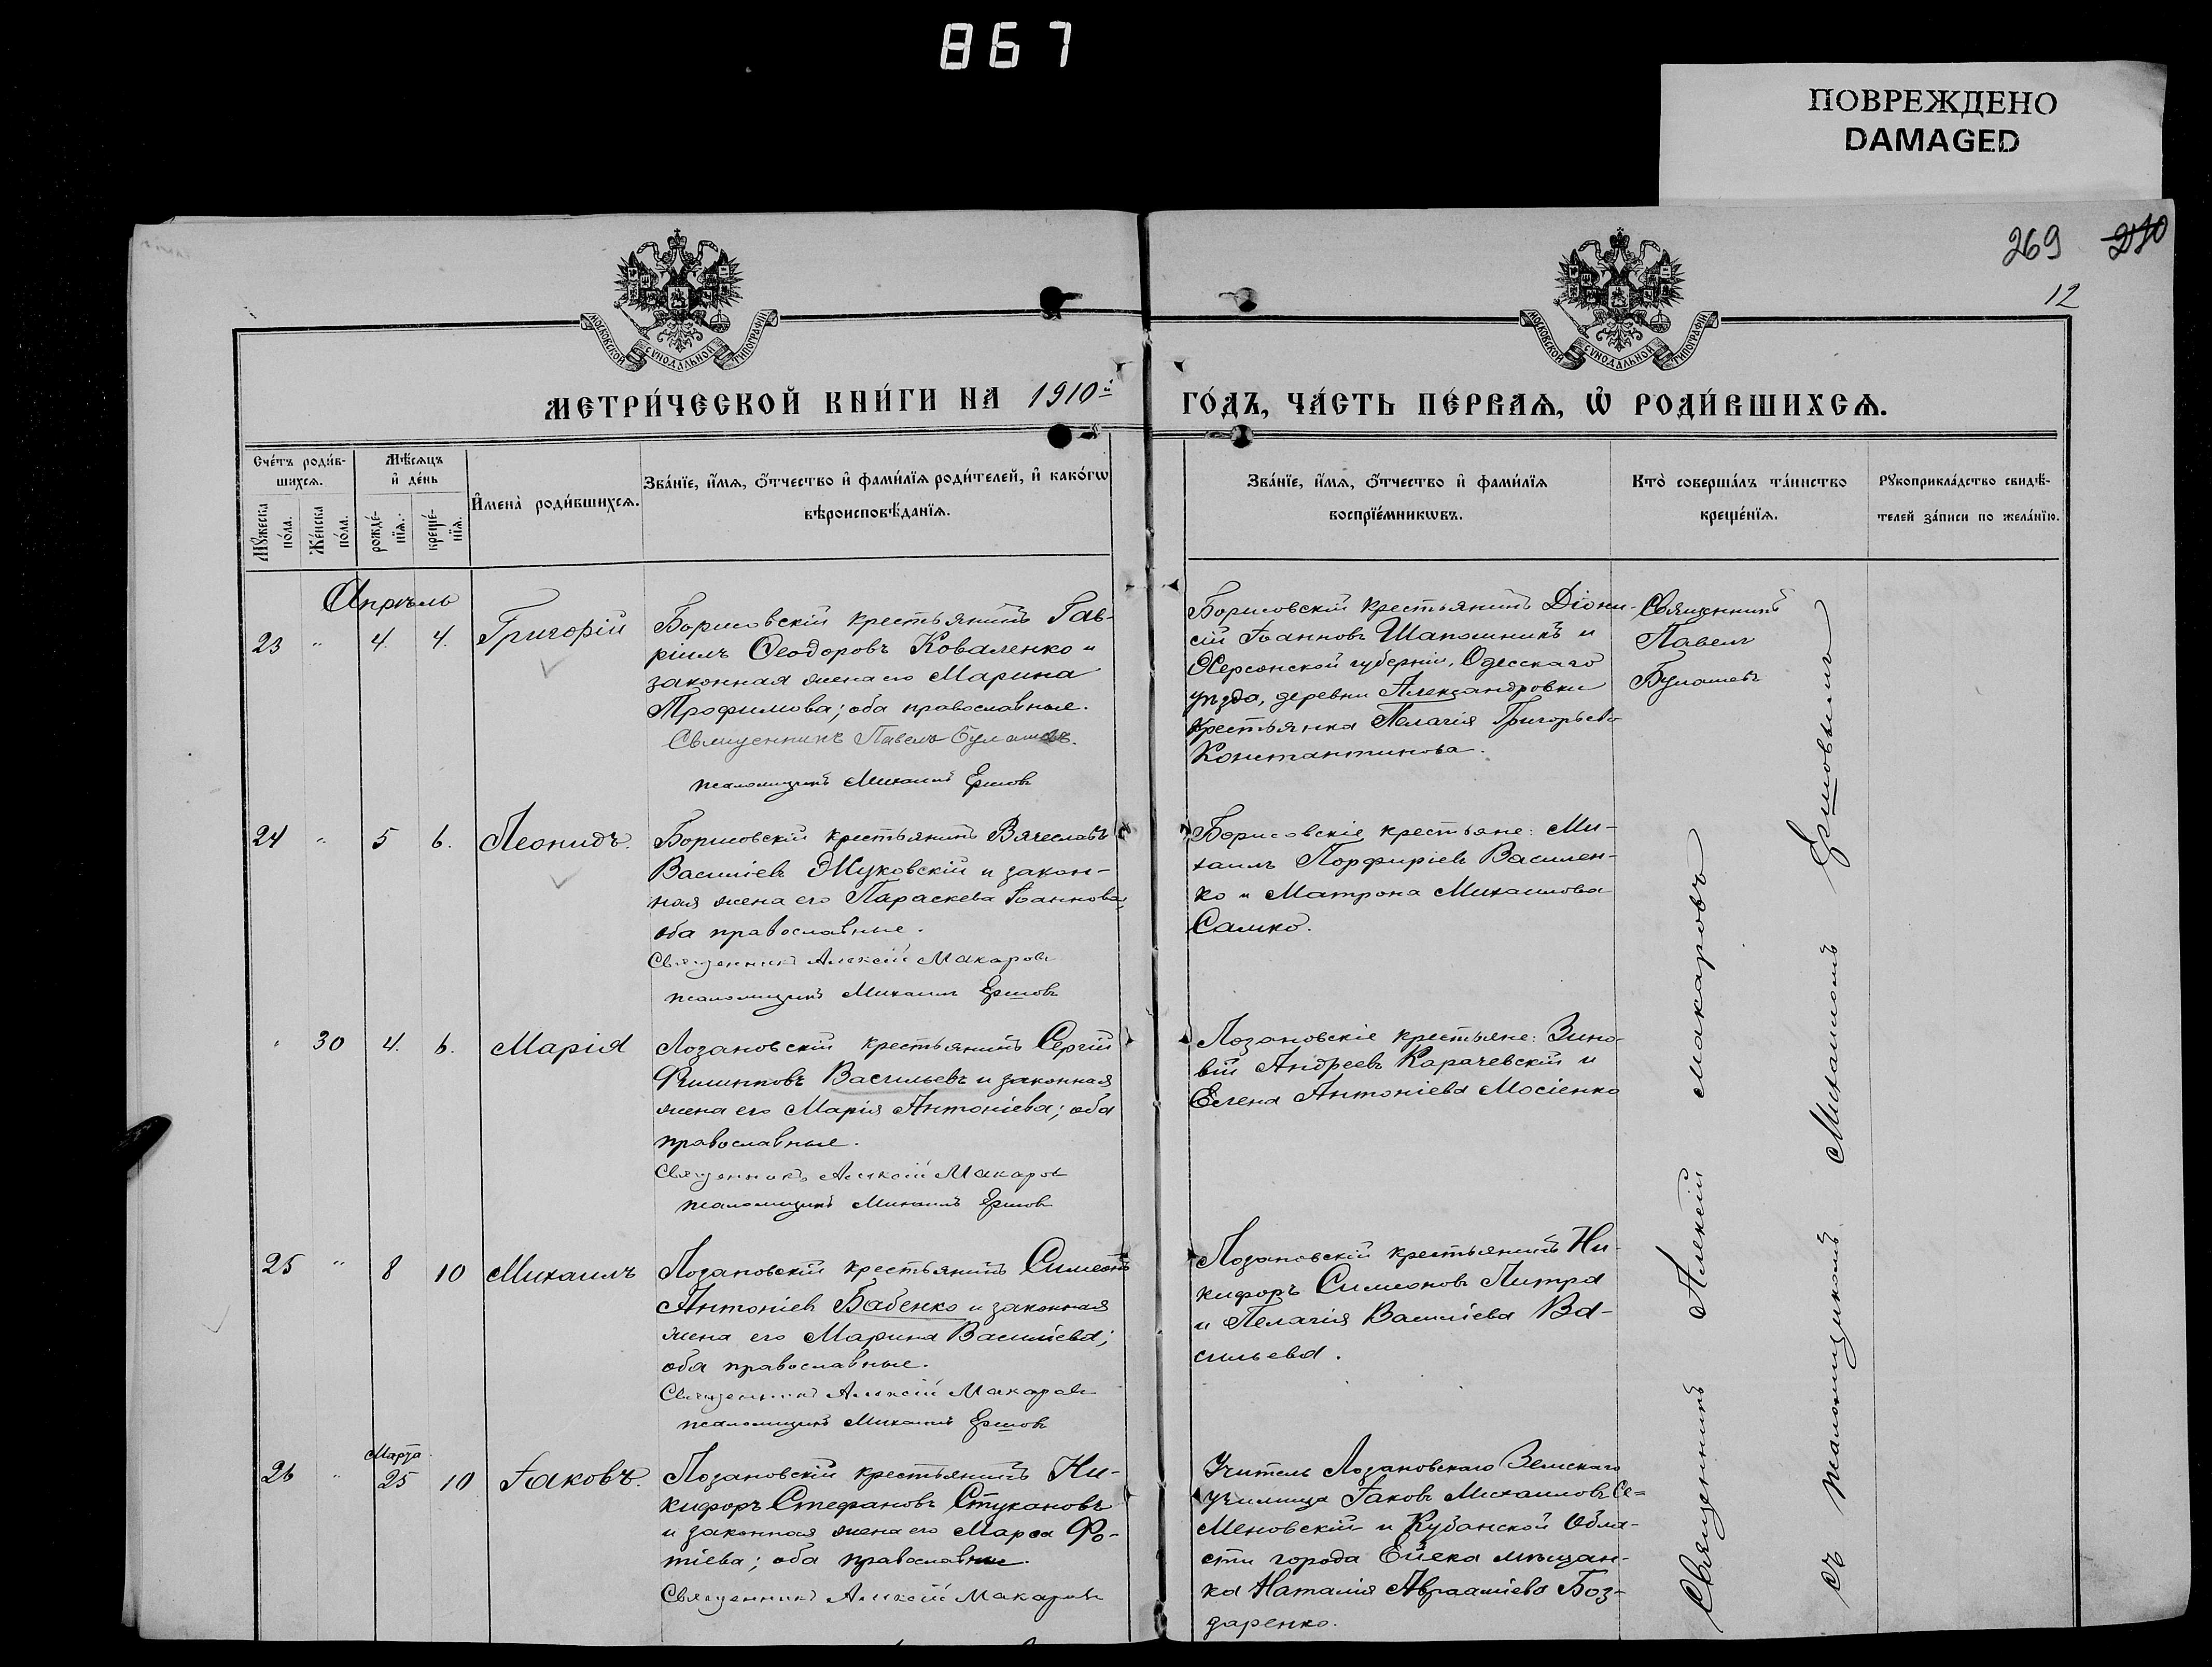 867
ПОВРЕЖДЕНО
DAMAGED
269 270
12
МОСКОВСКОЙ СѴНОДАЛЬНОЙ ТИПОГРАФІИ
МОСКОВСКОЙ СѴНОДАЛЬНОЙ ТИПОГРАФІИ
МЕТРИ́ЧЕСКОЙ КНИ́ГИ НА 1910й
ГО́ДЪ, ЧА́СТЬ ПЕ́РВАѦ, Ѡ҆ РОДИ́ВШИХСѦ.
Сче́тъ роди́в-
шихсѧ.
Мꙋ́жеска
по́ла.
Же́нска
по́ла.
Мѣ́сѧцъ
и҆ де́нь
рожде́-
нїѧ.
креще́-
нїѧ.
И҆мена̀ роди́вшихсѧ.
Зва́нїе, и҆́мѧ, ѻ҆́тчество и҆ фами́лїѧ роди́телей, и҆ како́гѡ
вѣроисповѣ́данїѧ.
Зва́нїе, и҆́мѧ, ѻ҆́тчество и҆ фами́лїѧ
воспрїе́мникѡвъ.
Кто̀ соверша́лъ та́инство
креще́нїѧ.
Рꙋкоприкла́дство свидѣ́-
телей за́писи по жела́нїю.
Апрѣль
23 " 4. 4. Григорій
Борисовскій крестьянинъ Гав-
ріилъ Ѳеодоровъ Коваленко и
законная жена его Марина
Трофимова; оба православные.
Священникъ Павелъ Булашевъ.
псаломщикъ Михаилъ Ершовъ
Борисовскій крестьянинъ Діони-
сій Іоанновъ Шапошникъ и
Херсонской губерніи, Одесскаго
уѣзда, деревни Александровки
крестьянка Пелагія Григорьева
Константинова.
Священникъ
Павелъ
Булашевъ
24 " 5 6. Леонидъ.
Борисовскій крестьянинъ Вячеславъ
Василіевъ Жуковскій и закон-
ная жена его Параскева Іоаннова;
оба православные.
Священникъ Алексій Макаровъ
псаломщикъ Михаилъ Ершовъ
Борисовскіе крестьяне: Ми-
хаилъ Порфиріевъ Василен-
ко и Матрона Михаилова
Самко.
" 30 4. 6. Марія
Лозановскій крестьянинъ Сергій
Филипповъ Васильевъ и законная
жена его Марія Антоніева; оба
православные.
Священникъ Алексій Макаровъ
псаломщикъ Михаилъ Ершовъ
Лозановскіе крестьяне: Зино-
вій Андреевъ Карачевскій и
Елена Антоніева Мосіенко
25 " 8 10 Михаилъ
Лозановскій крестьянинъ Симеонъ
Антоніевъ Бабенко и законная
жена его Марина Василіева;
оба православные.
Священникъ Алексій Макаровъ
псаломщикъ Михаилъ Ершовъ
Лозановскій крестьянинъ Ни-
кифоръ Симеоновъ Питра
и Пелагія Василіева Ва-
сильева.
Марта
26 " 25 10 Іаковъ.
Лозановскій крестьянинъ Ни-
кифоръ Стефановъ Стукановъ
и законная жена его Марѳа Фо-
тіева; оба православные.
Священникъ Алексій Макаровъ
Учитель Лозановскаго Земскаго
училища Іаковъ Михаиловъ Се=
меновскій и Кубанской Обла-
сти города Ейска мѣщан-
ка Наталія Авраамієва Боз-
даренко.
Священникъ Алексій Макаровъ
съ псаломщикомъ Михаиломъ Ершовымъ